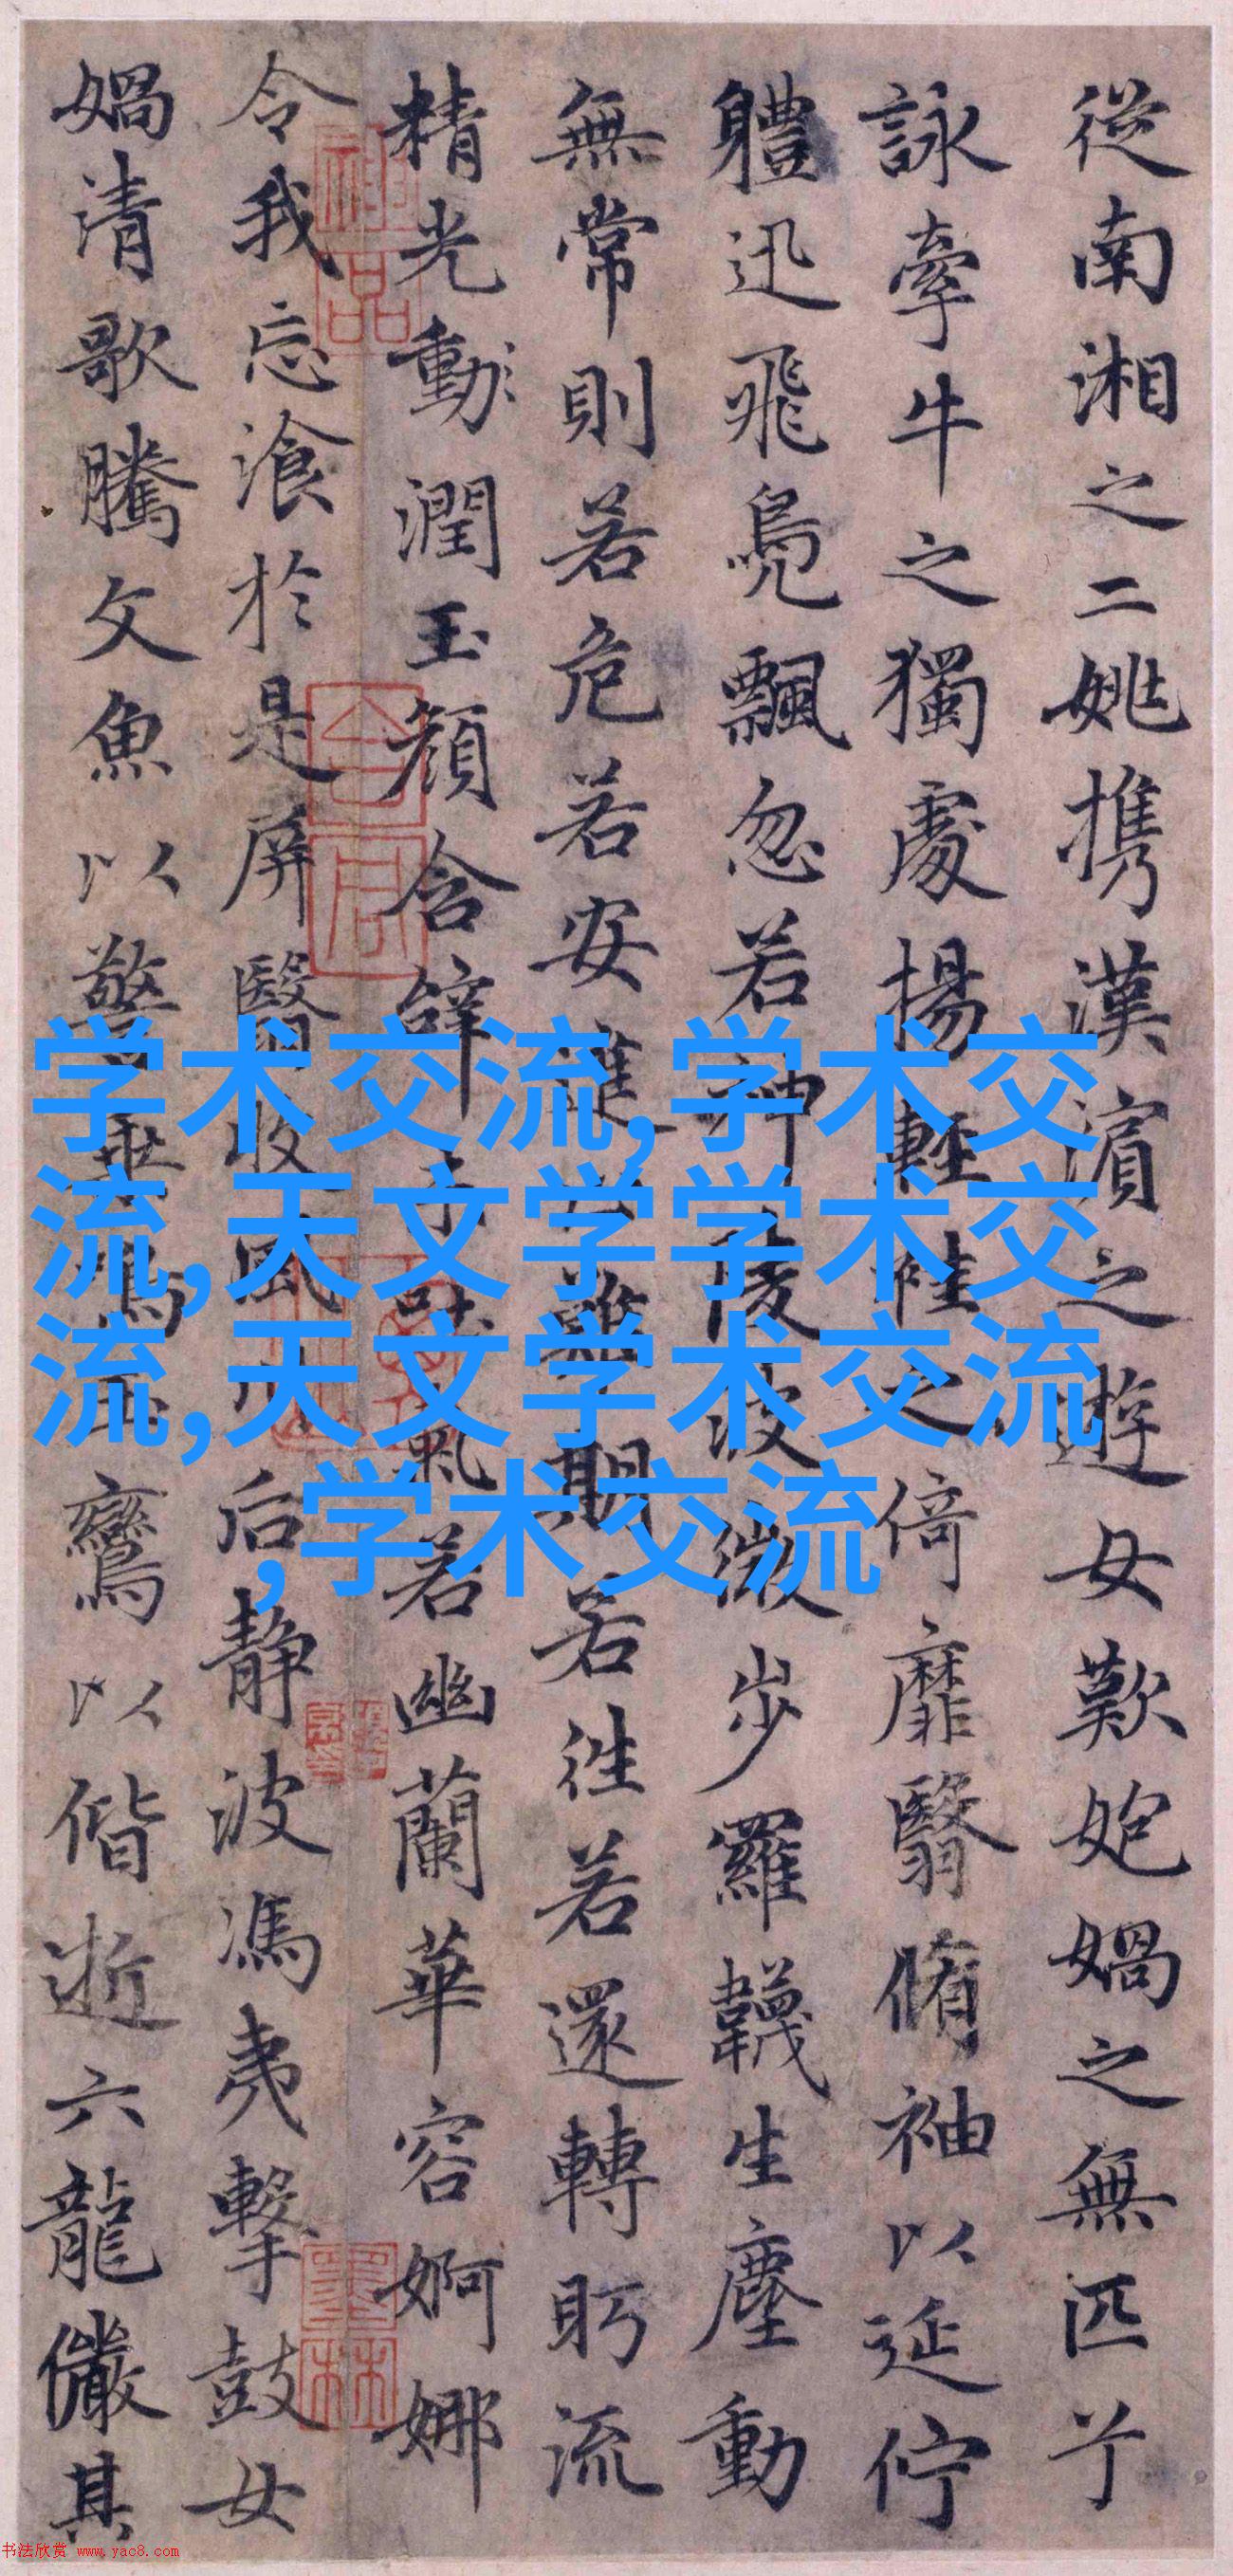 從南湘之二姚攜漢濱之遊女歎匏媧之無匹兮
詠牽牛之獨處揚輕袿之倚靡翳脩袖以延佇
軆迅飛鳧飄忽若神陵波微步羅韈生塵動
無常則若危若安進止難期若往若還轉眄流
精光動潤玉顏含辭未吐氣若幽蘭華容婀娜
令我忘飡於是屏翳收風川后静波馮夷擊鼓女
媧清歌騰文魚以警乘鳴玉鸞以偕逝六龍儼其
学术交流,学术交
流,天文学学术交
流,天文学术交流
,学术交流
书法欣赏 www.yac8.com